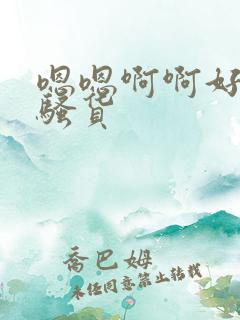 嗯嗯啊啊好
骚货
乔巴姆
未经同意禁止转载